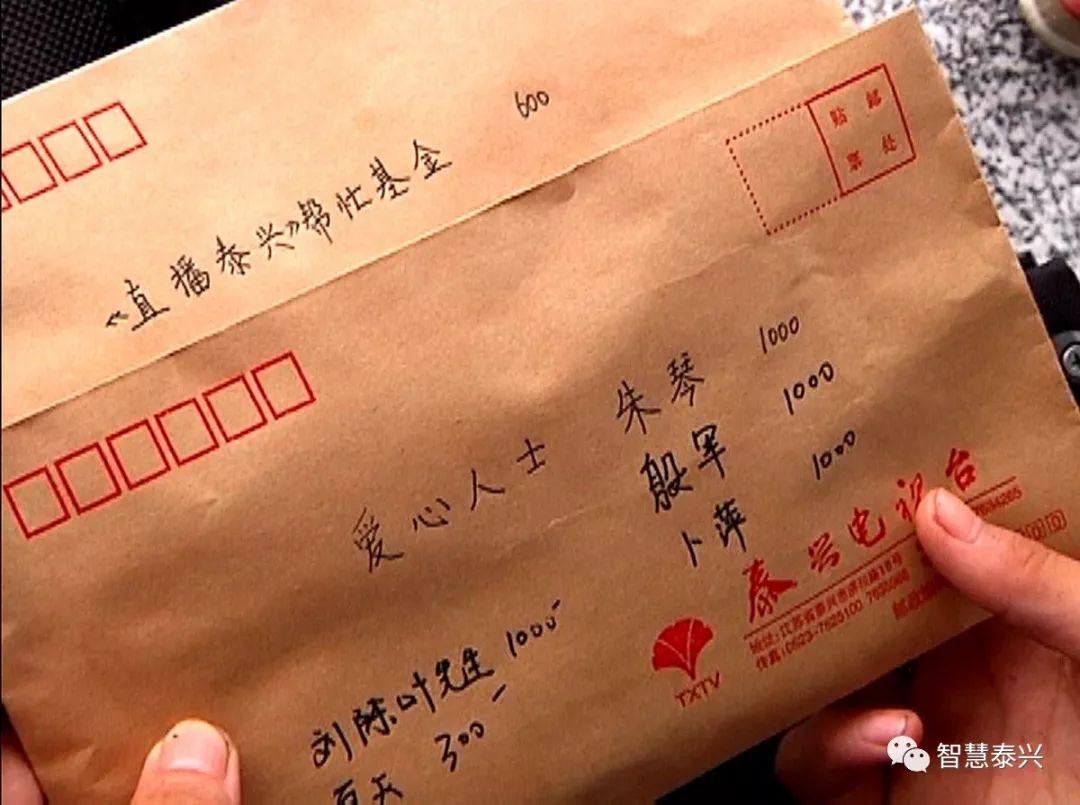 600
《直播泰兴》帮忙基金
贴邮
票处
爱心人士 朱琴 1000
殷军 1000
卜萍 1000
刘陈叶先生 1000
300
泰兴电视台
地址:江苏省泰兴市济川路18号
传真:0523-7625100
TXTV
智慧泰兴